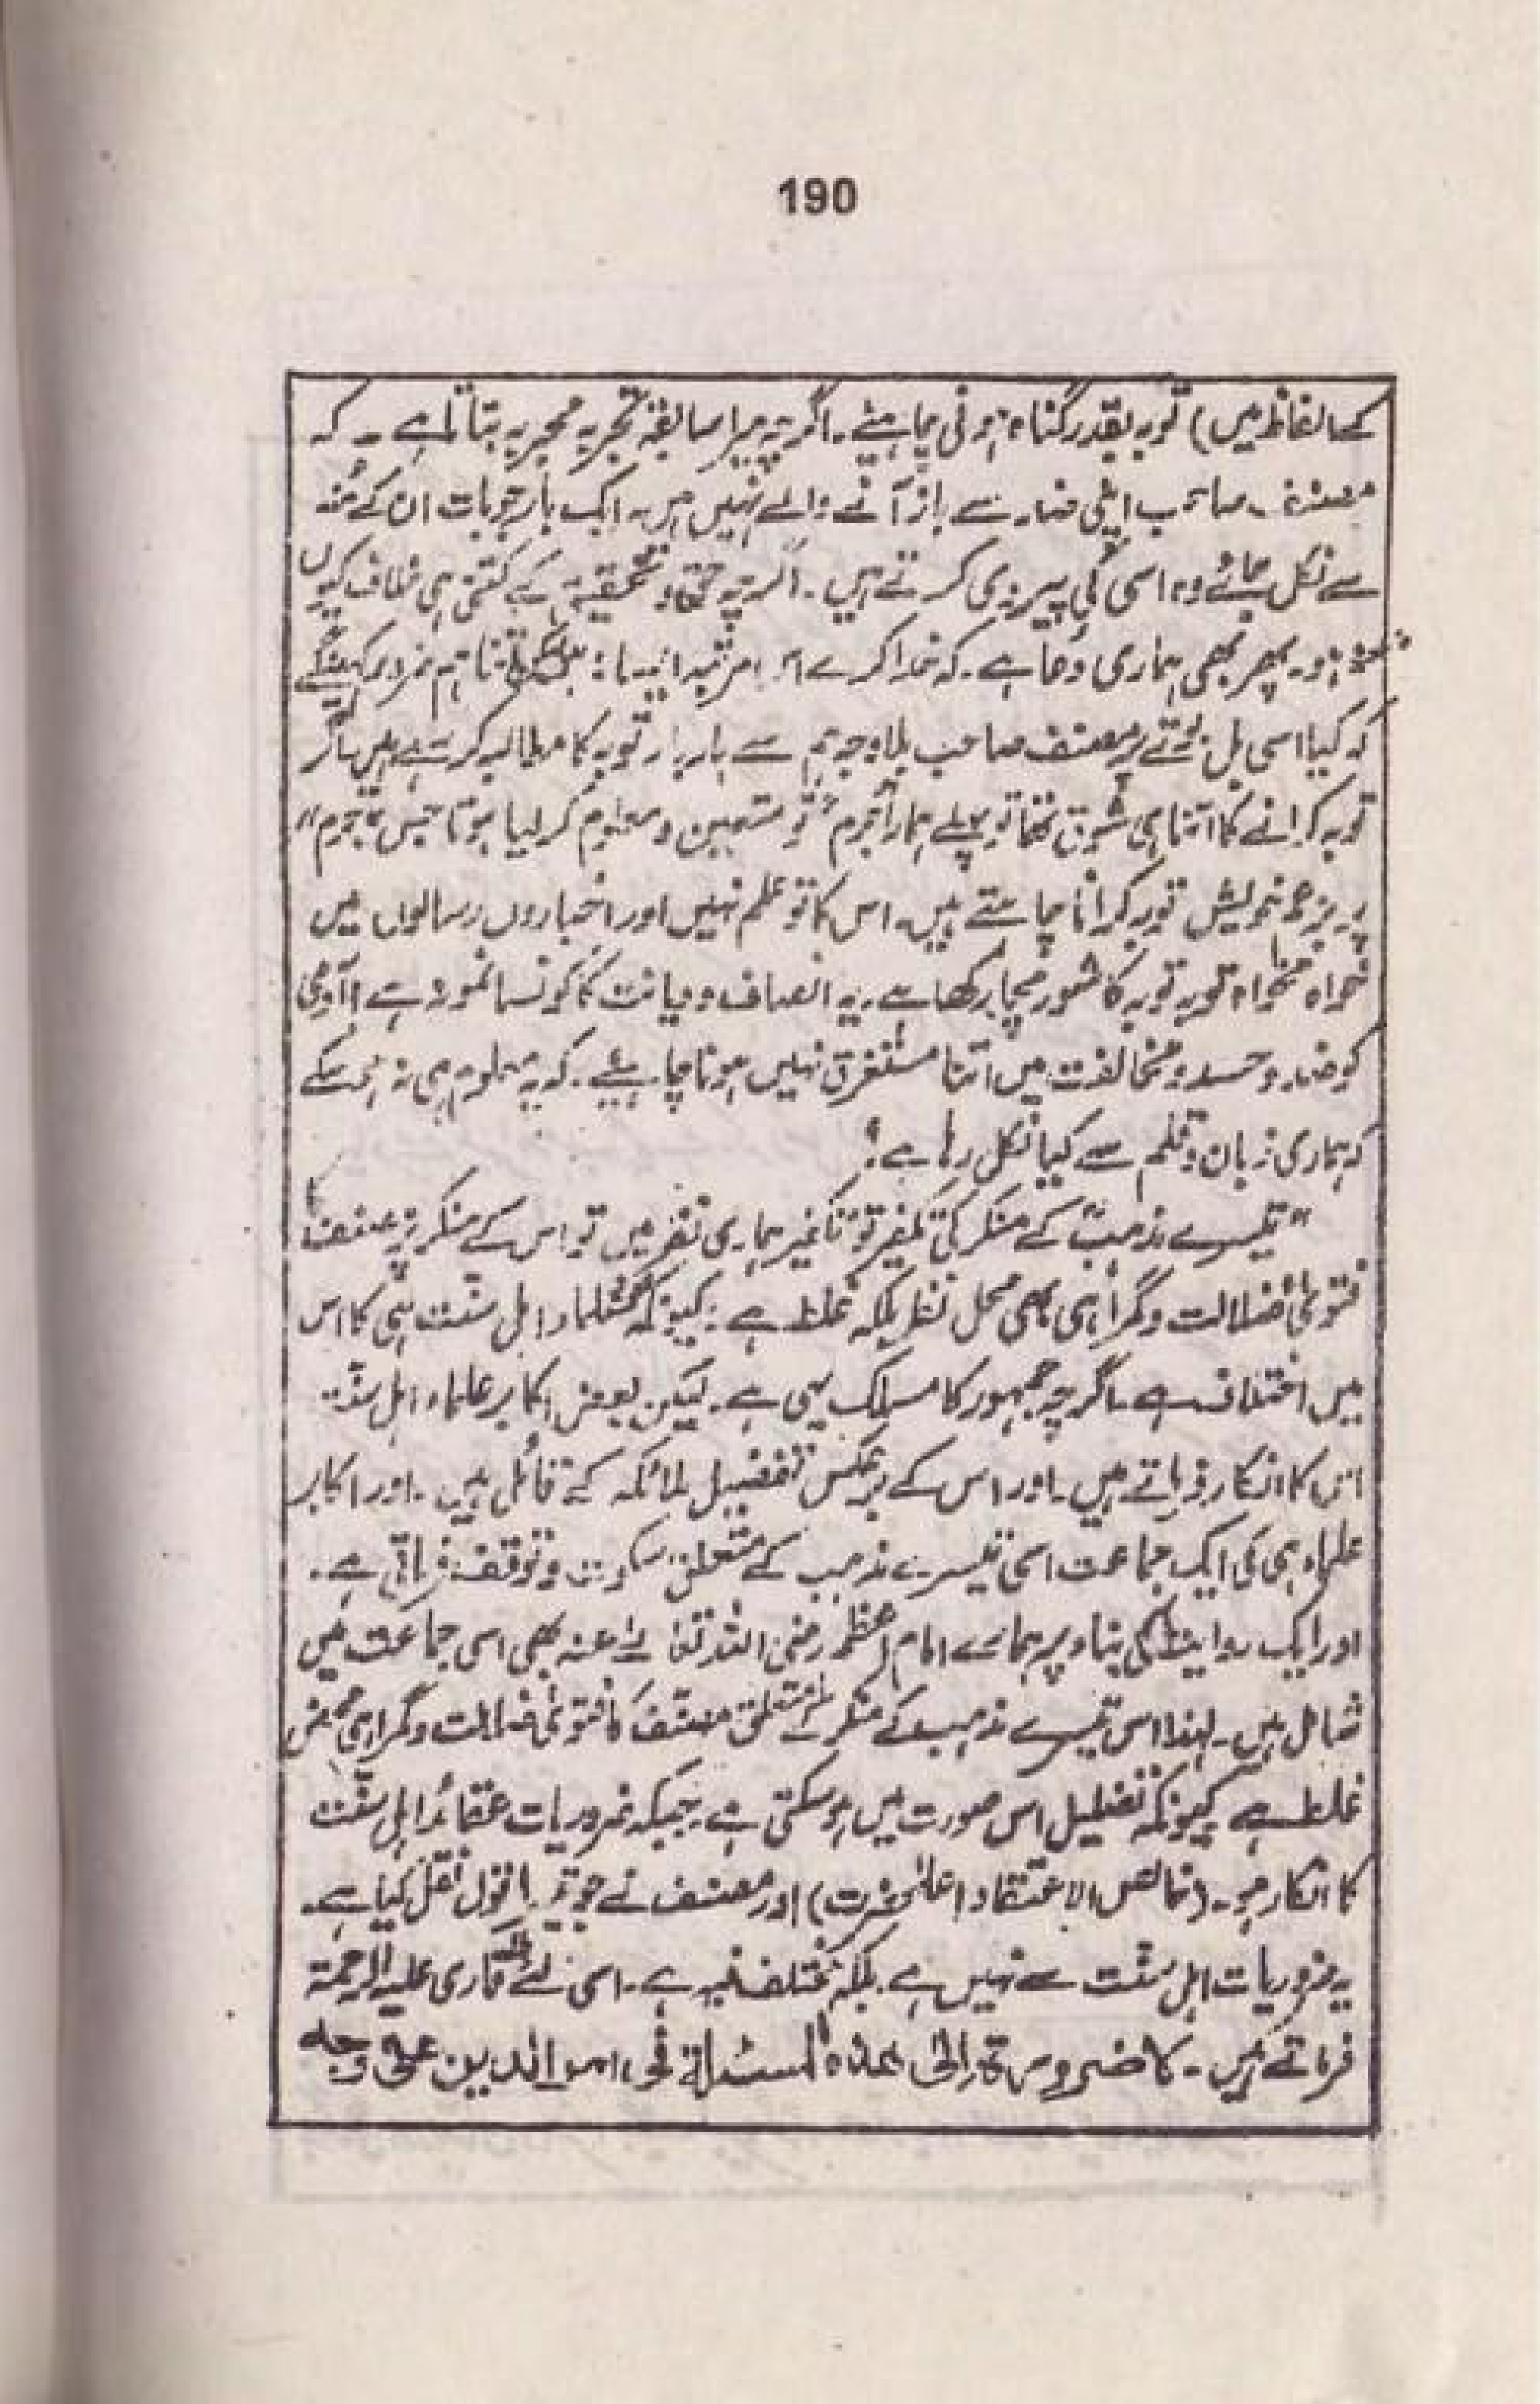 190
کے الفاظ میں) توبہ بقدر گناہ ہونی چاہئے۔ اگرچہ میرا سابقہ تجربہ مجریہ بتاتا ہے۔ کہ
مصنف صاحب اپنی ضد سے باز آنے والے نہیں ہیں۔ ایک بار جو بات ان کے منہ
سے نکل جائے وہ اسی کی پیروی کرتے ہیں۔ اگرچہ حق و تحقیق کے کتنی ہی خلاف کیوں
نہ ہو۔ پھر بھی ہماری دعا ہے۔ کہ خدا کرے اس مرتبہ ایسا نہ ہو لیکن اتنا ہم ضرور کہینگے
کہ کیا اسی بل بوتے پر مصنف صاحب بلاوجہ ہم سے بار بار توبہ کا مطالبہ کر رہے ہیں اگر
توبہ کرانے کا اتنا ہی شوق تھا تو پہلے ہمارا "جرم" تو متعین و معلوم کر لیا ہوتا جس "جرم"
پر بزعم خویش توبہ کرانا چاہتے ہیں۔ اس کا تو علم نہیں اور اخباروں رسالوں میں
خواہ مخواہ توبہ توبہ کا شور مچا رکھا ہے۔ یہ انصاف و دیانت کا کونسا نمونہ ہے؟ آدمی
کو ضد و حسد و مخالفت میں اتنا مستغرق نہیں ہونا چاہئے۔ کہ یہ معلوم ہی نہ ہو سکے
کہ ہماری زبان و قلم سے کیا نکل رہا ہے؟
"تیسرے مذہب" کے منکر کی تکفیر تو تا خیر ہماری نظر میں تو اس کے منکر پر مصنف کا
فتویٰ ضلالت و گمراہی بھی محل نظر بلکہ غلط ہے۔ کیونکہ علماء اہل سنت ہی کا اس
میں اختلاف ہے۔ اگرچہ جمہور کا مسلک یہی ہے۔ لیکن بعض اکابر علماء اہل سنت
اس کا انکار فرماتے ہیں۔ اور اس کے برعکس تفضیل ملائکہ کے قائل ہیں۔ اور اکابر
علماء ہی کی ایک جماعت اسی تیسرے مذہب کے متعلق سکوت و توقف فرماتی ہے۔
اور ایک روایت کی بناء پر ہمارے امام اعظم رضی اللہ تعالیٰ عنہ بھی اسی جماعت میں
شامل ہیں۔ لہٰذا اس تیسرے مذہب کے منکر کے متعلق مصنف کا فتویٰ ضلالت و گمراہی محض
غلط ہے کیونکہ تضلیل اس صورت میں ہو سکتی ہے۔ جبکہ ضروریات عقائد اہل سنت
کا انکار ہو۔ (خالص الاعتقاد اعلیٰحضرت) اور مصنف نے جو قول نقل کیا ہے۔
یہ ضروریات اہل سنت سے نہیں ہے۔ بلکہ مختلف فیہ ہے۔ اسی لئے قاری علیہ الرحمۃ
فرماتے ہیں۔ لا ضرورۃ الیٰ ھذہ المسئلۃ فی امر الدین علیٰ وجہ